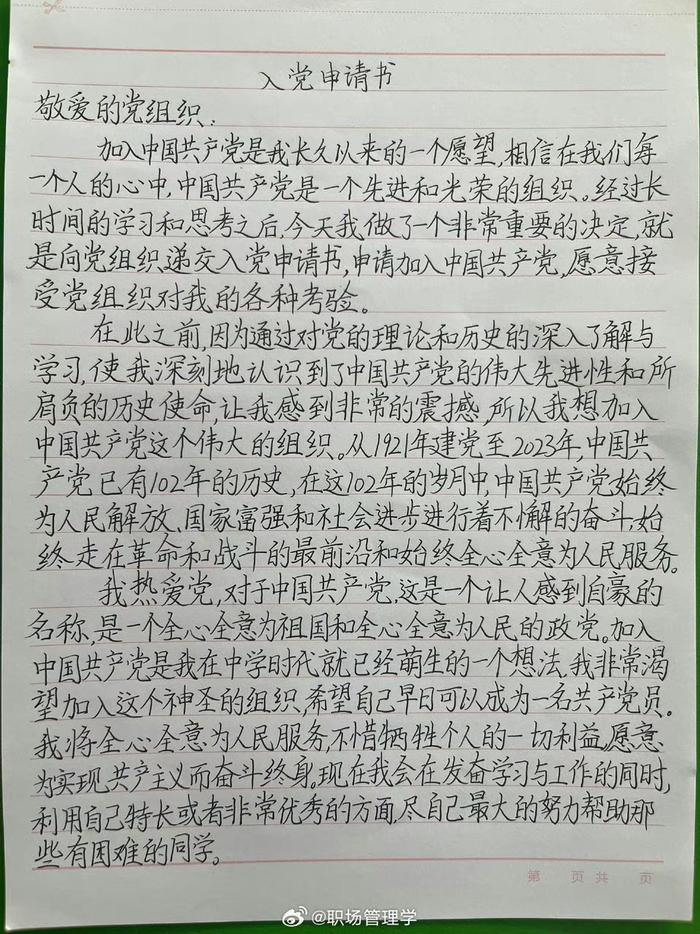 入党申请书
敬爱的党组织:
加入中国共产党是我长久以来的一个愿望,相信在我们每
一个人的心中,中国共产党是一个先进和光荣的组织。经过长
时间的学习和思考之后,今天我做了一个非常重要的决定,就
是向党组织递交入党申请书,申请加入中国共产党,愿意接
受党组织对我的各种考验。
在此之前,因为通过对党的理论和历史的深入了解与
学习,使我深刻地认识到了中国共产党的伟大先进性和所
肩负的历史使命,让我感到非常的震撼,所以我想加入
中国共产党这个伟大的组织。从1921年建党至2023年,中国共
产党已有102年的历史,在这102年的岁月中,中国共产党始终
为人民解放、国家富强和社会进步进行着不懈的奋斗,始
终走在革命和战斗的最前沿和始终全心全意为人民服务。
我热爱党,对于中国共产党,这是一个让人感到自豪的
名称,是一个全心全意为祖国和全心全意为人民的政党。加入
中国共产党是我在中学时代就已经萌生的一个想法,我非常渴
望加入这个神圣的组织,希望自己早日可以成为一名共产党员。
我将全心全意为人民服务,不惜牺牲个人的一切利益,愿意
为实现共产主义而奋斗终身。现在我会在发奋学习与工作的同时,
利用自己特长或者非常优秀的方面,尽自己最大的努力帮助那
些有困难的同学。
第 页共 页
@职场管理学